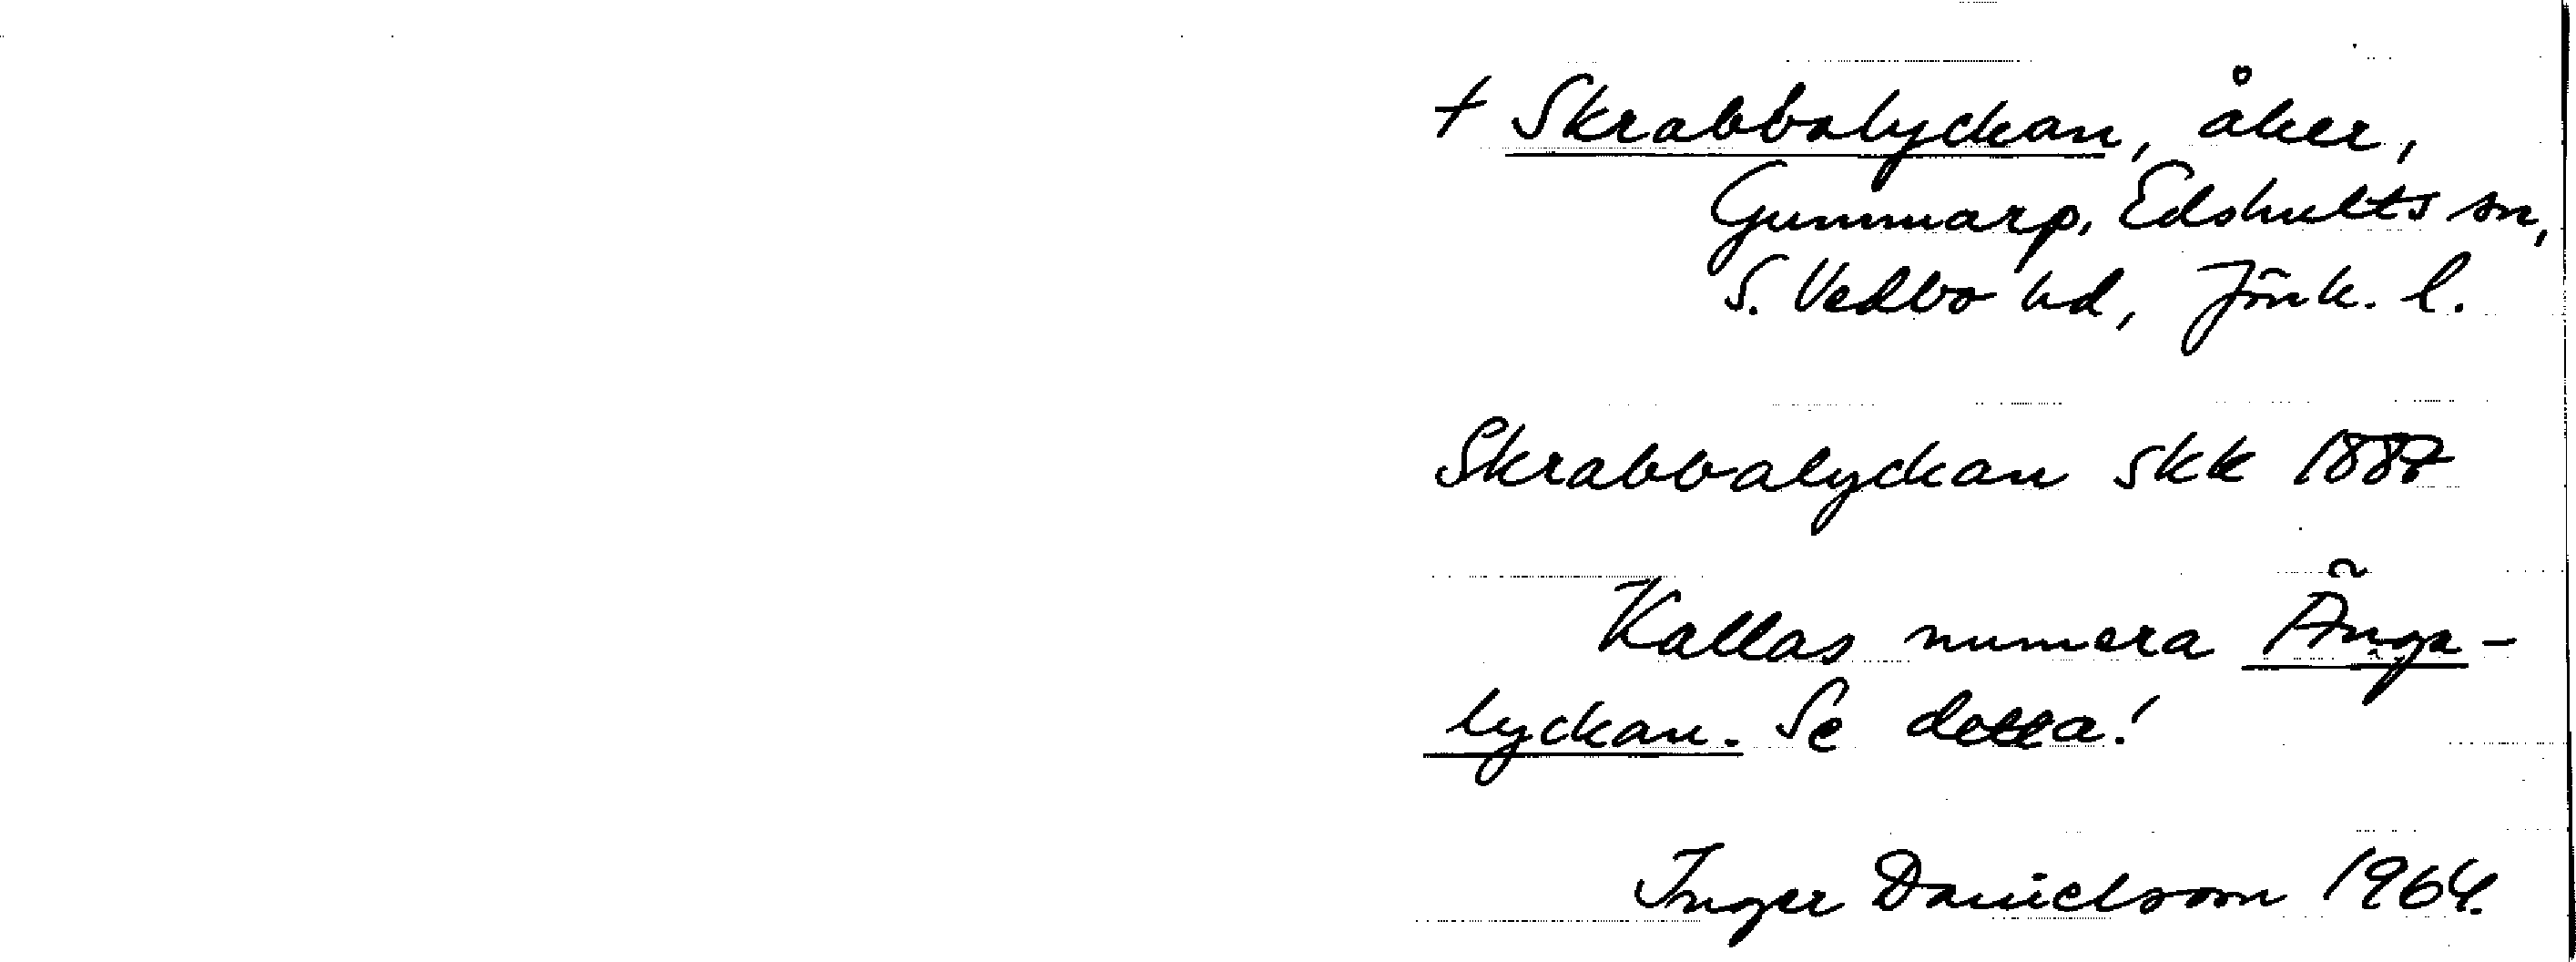 + Skrabbalyckan, åker,
Gummarp, Edshults sn,
S. Vedbo hd, Jönk. l.
Skrabbalyckan skk 1887
Kallas numera Änga-
lyckan. Se detta!
Inger Danielsson 1964.